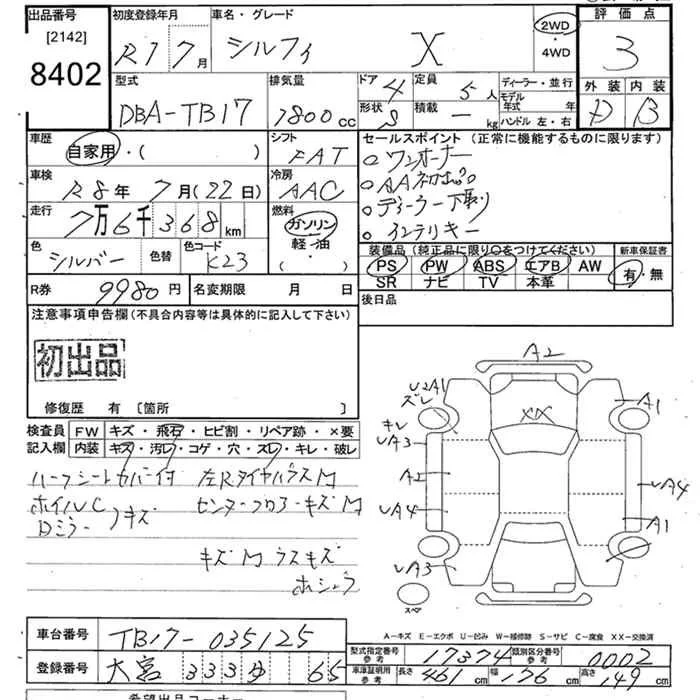 出品番号
[2142]
8402
初度登録年月
R1 7月
車名・グレード
シルフィ X
2WD
・
4WD
評価点
3
外装 内装
D B
型式
DBA-TB17
排気量
1800cc
ドア 4
形状 S
定員 5人
積載 ー kg
ディーラー・並行
モデル
年式 年
ハンドル 左・右
車歴
自家用・( )
シフト
FAT
車検
R8年 7月(22日)
冷房
AAC
走行
7万6千368km
燃料
ガソリン
軽・油
( ・ )
色
シルバー
色替
色コード
K23
セールスポイント(正常に機能するものに限ります)
○ワンオーナー
○AA初出品
○ディーラー下取り
○インテリキー
装備品(純正品に限り○をつけてください)
PS PW ABS エアB AW
SR ナビ TV 本革
新車保証書
有・無
R券 9980円
名変期限 月 日
後日品
注意事項申告欄(不具合内容等は具体的に記入して下さい)
初出品
修復歴 有 [箇所 ]
検査員
記入欄
FW キズ・飛石・ヒビ割・リペア跡・×要
内装 キズ・汚レ・コゲ・穴・スレ・キレ・破レ
ハーフシートカバー付
ホイルC
Dミラー
キズ
左Rタイヤハウス M
センターフロアーキズM
キズM ウスキズ
ホシュウ
A2
U2A1
ズレ
キレ
UA3
A2
UA4
UA3
XX
A1
UA4
A1
スペア
A-キズ E-エクボ U-凹み W-補修跡 S-サビ C-腐食 XX-交換済
車台番号
TB17-035125
登録番号
大宮 333 ゆ 65
型式指定番号
参考
17374
類別区分番号
参考
0002
車庫証明用
参考
長さ 461cm
幅 176cm
高さ 149cm
希望出品コーナー